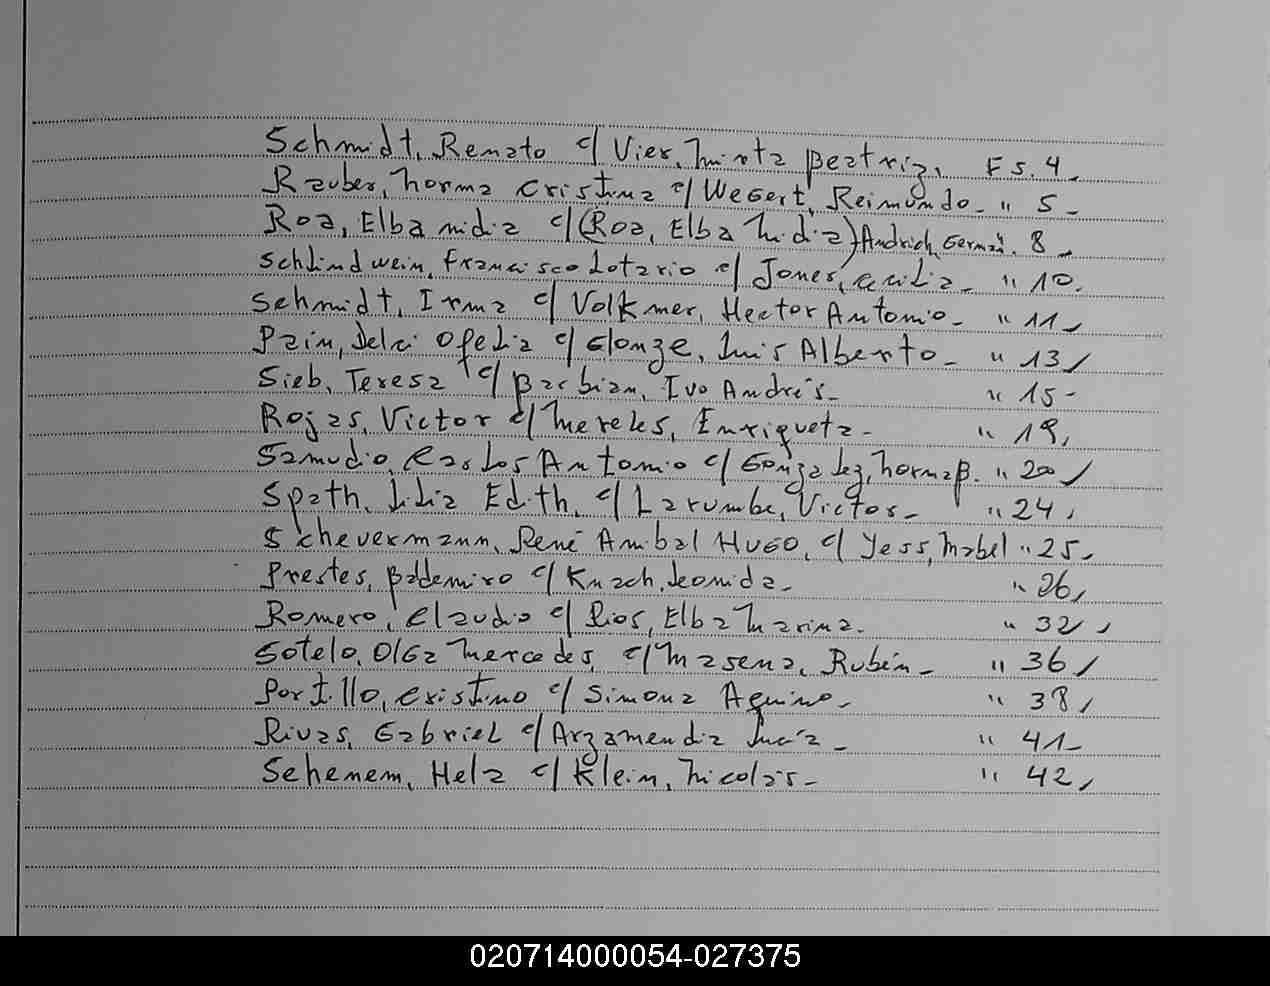 Schmidt, Renato c/ Vier, Mirta Beatriz, Fs. 4.
Rauber, Norma Cristina c/ Wegert, Reimundo- " 5-
Roa, Elba Nidia c/ (Roa, Elba Nidia) Andrich, Germán. 8-
Schlindwein, Francisco Lotario c/ Jones, Cecilia- " 10.
Schmidt, Irma c/ Volkmer, Hector Antonio- " 11-
Pain, Delci Ofelia c/ Luis Alberto- " 13/
Sieb, Teresa c/ Barbian, Ivo Andrés- " 15-
Rojas, Victor c/ Mereles, Enriqueta- " 19,
Samudio, Carlos Antonio c/ Gonzalez, Norma B. " 20/
Spath, Lilia Edith, c/ Larumbe, Victor- " 24,
Schevermann, René Anibal Hugo, c/ Yess, Mabel " 25-
Prestes, Baldemiro c/ Knach, Leonida- " 26,
Romero, Claudio c/ Rios, Elba Marina. " 32,
Sotelo, Olga Mercedes, c/ Masena, Rubén- " 36/
Portillo, Cristino c/ Simona Aquino- " 38,
Rivas, Gabriel c/ Arzamendia Lucía- " 41-
Sehenem, Hela c/ Klein, Nicolás- " 42,
020714000054-027375